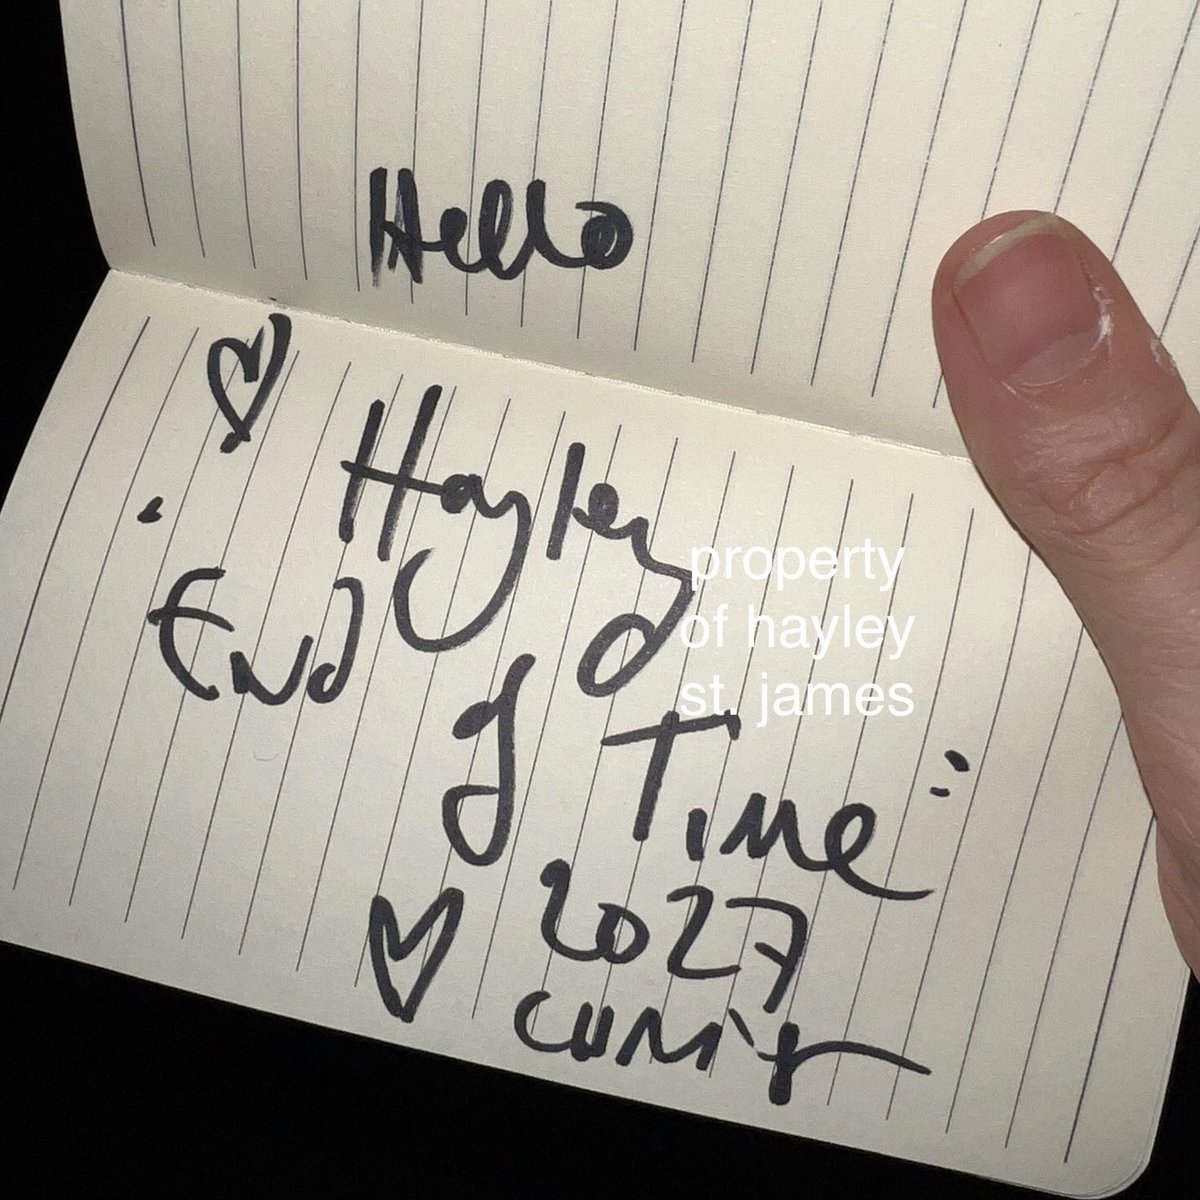 Hello
♡ Hayley
"End
of
Time"
♡ 2027
property
of hayley
st. james